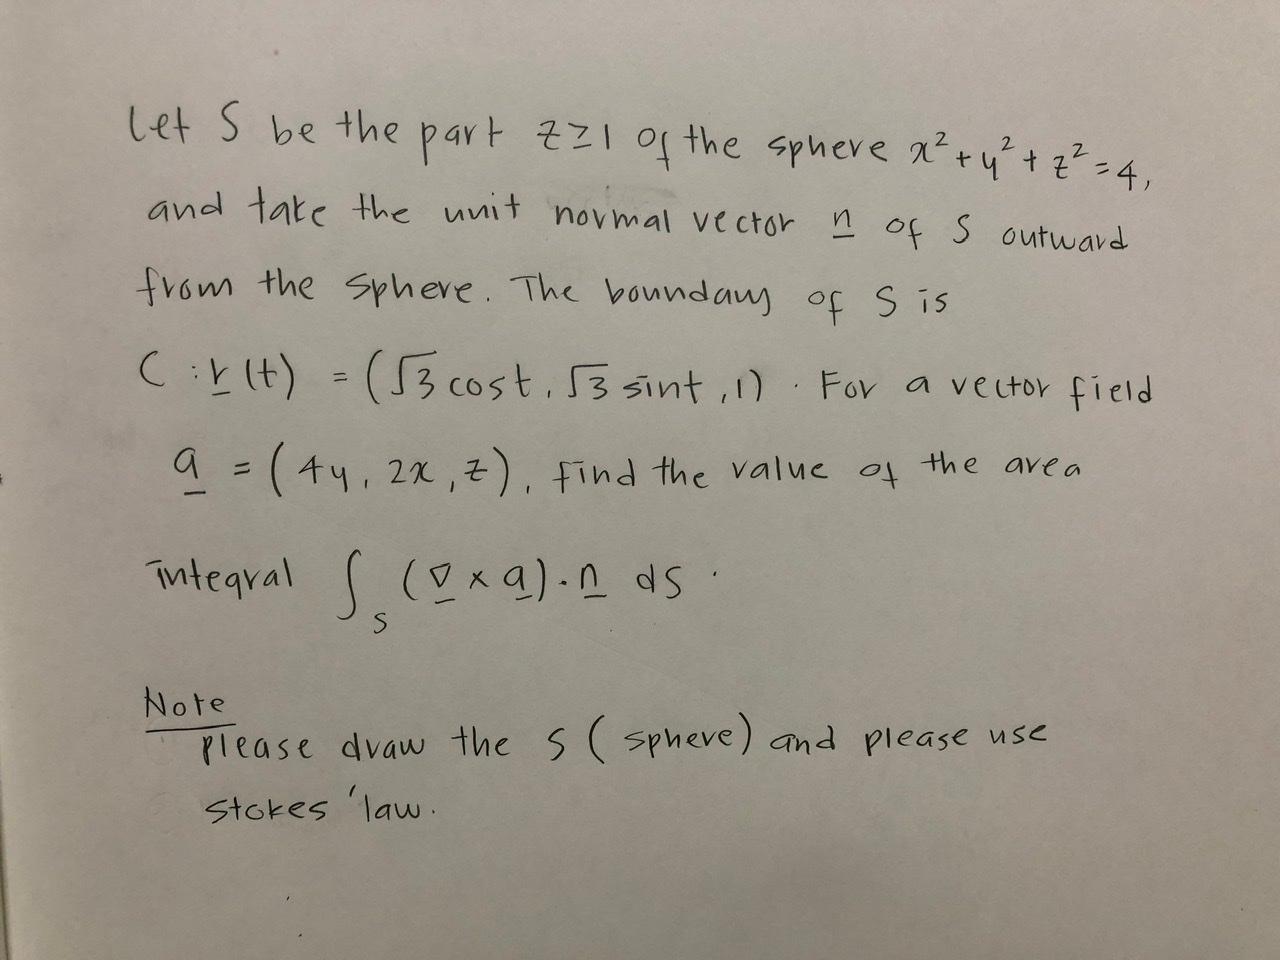 Let S be the part z≥1 of the sphere x²+y²+z²=4,
and take the unit normal vector n of S outward
from the sphere. The boundary of S is
C : r(t) = (√3 cost, √3 sint, 1). For a vector field
a = (4y, 2x, z), find the value of the area
integral ∫_S (∇ × a)·n dS.
Note
please draw the S (sphere) and please use
stokes' law.